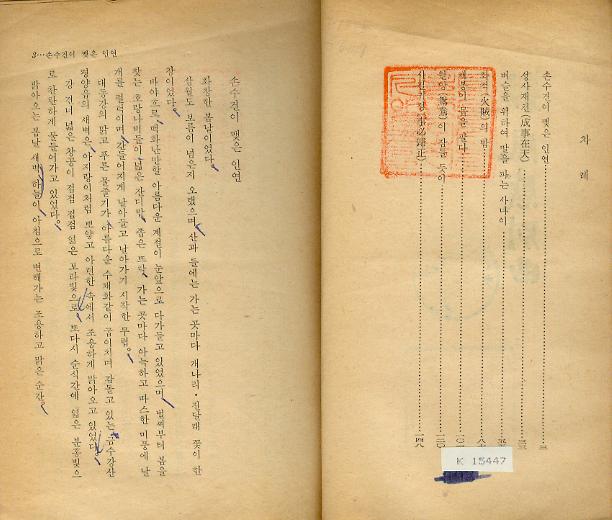 차 례
손수건이 맺은 인연
성사재천(成事在天)
벼슬을 위하여 딸을 파는 사나이
화적(火賊)의 밤
이 잠들 듯이
사필귀정(事必歸正)
一四八
K 15447
3…손수건이 맺은 인연
손수건이 맺은 인연
화창한 봄날이었다.
삼월도 보름이 넘은지 오랬으며 산과 들에는 가는 곳마다 개나리·진달래 꽃이 한
창이었다.
바야흐로 백화난만할 아름다운 계절이 눈앞으로 다가들고 있었으며 벌써부터 봄을
찾는 호랑나비들이 넓은 잔디밭 좁은 뜨락 가는 곳마다 아늑하고 따스한 미풍에 날
개를 펄럭이며 간들어지게 날아들고 날아가기 시작한 무렵。
대동강의 맑고 푸른 물줄기가 아름다운 수채화같이 굽이치며 감돌고 있는 금수강산
평양성의 새벽은 아지랑이처럼 뽀얗고 아련한 속에서 조용하게 밝아오고 있었다。
강 건너 넓은 창공이 점점 옅은 보라빛으로 또다시 순식간에 엷은 분홍빛으
로 찬란하게 물들어가고 있었다。
밝아오는 봄날 새벽 하늘이 아침으로 변해가는 조용하고 맑은 순간。